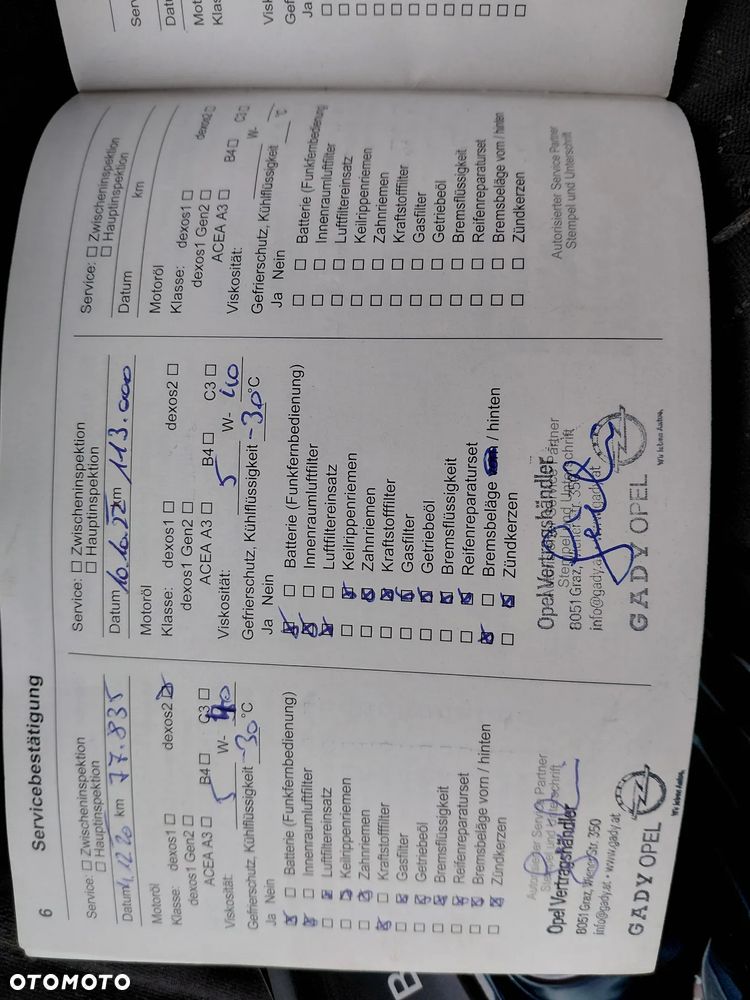 6
Servicebestätigung
Service: Zwischeninspektion
Hauptinspektion
Datum 1.12.20 km 77.835
Motoröl
Klasse: dexos1 dexos2
dexos1 Gen2
ACEA A3 B4 C3
Viskosität: 5 W- 40
Gefrierschutz, Kühlflüssigkeit -30 °C
Ja Nein
Batterie (Funkfernbedienung)
Innenraumluftfilter
Luftfiltereinsatz
Keilrippenriemen
Zahnriemen
Kraftstofffilter
Gasfilter
Getriebeöl
Bremsflüssigkeit
Reifenreparaturset
Bremsbeläge vorn / hinten
Zündkerzen
Autorisierter Service Partner
Stempel und Unterschrift
Opel Vertragshändler
8051 Graz, Wiener Str. 350
info@gady.at • www.gady.at
GADY OPEL
Wir leben Autos.
Service: Zwischeninspektion
Hauptinspektion
Datum 10.10.22 km 113.000
Motoröl
Klasse: dexos1 dexos2
dexos1 Gen2
ACEA A3 B4 C3
Viskosität: 5 W- 40
Gefrierschutz, Kühlflüssigkeit -30 °C
Ja Nein
Batterie (Funkfernbedienung)
Innenraumluftfilter
Luftfiltereinsatz
Keilrippenriemen
Zahnriemen
Kraftstofffilter
Gasfilter
Getriebeöl
Bremsflüssigkeit
Reifenreparaturset
Bremsbeläge / hinten
Zündkerzen
Service Partner
Stempel und Unterschrift
Opel Vertragshändler
8051 Graz, Str. 350
info@gady.at
GADY OPEL
Wir leben Autos.
Service: Zwischeninspektion
Hauptinspektion
Datum km
Motoröl
Klasse: dexos1 dexos2
dexos1 Gen2
ACEA A3 B4 C3
Viskosität: W-
Gefrierschutz, Kühlflüssigkeit °C
Ja Nein
Batterie (Funkfernbedienung)
Innenraumluftfilter
Luftfiltereinsatz
Keilrippenriemen
Zahnriemen
Kraftstofffilter
Gasfilter
Getriebeöl
Bremsflüssigkeit
Reifenreparaturset
Bremsbeläge vorn / hinten
Zündkerzen
Autorisierter Service Partner
Stempel und Unterschrift
Ja
OTOMOTO